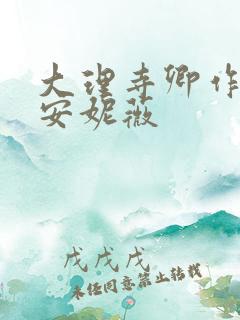 大理寺卿作
安妮薇
戊戌戊
未经同意禁止转载